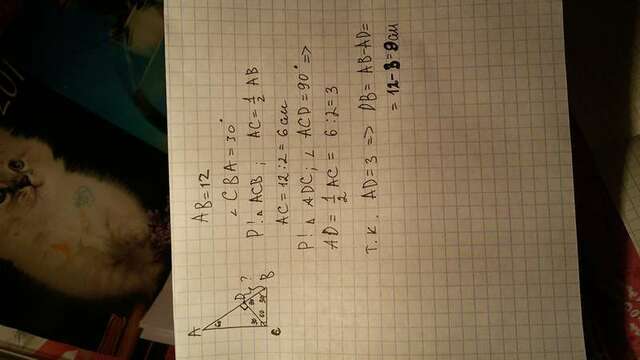 AB=12
∠CBA=30°
Р! △ ACB; AC=1/2 AB
AC=12:2=6см
Р! △ ADC, ∠ ACD=90° =>
AD=1/2 AC = 6:2=3
Т.к. AD=3 => DB= AB-AD=
= 12-3=9см
A
D
?
B
60
30
60
30
C